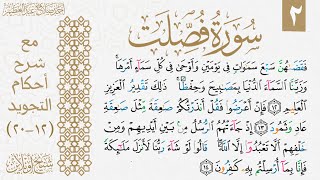 ٢
سورة فصلت
مع
شرح
أحكام
التجويد
(١٢-٢٠)
فَقَضَىٰهُنَّ سَبْعَ سَمَٰوَاتٍ فِى يَوْمَيْنِ وَأَوْحَىٰ فِى كُلِّ سَمَآءٍ أَمْرَهَا ۚ
وَزَيَّنَّا ٱلسَّمَآءَ ٱلدُّنْيَا بِمَصَٰبِيحَ وَحِفْظًا ۚ ذَٰلِكَ تَقْدِيرُ ٱلْعَزِيزِ
ٱلْعَلِيمِ ١٢ فَإِنْ أَعْرَضُوا۟ فَقُلْ أَنذَرْتُكُمْ صَٰعِقَةً مِّثْلَ صَٰعِقَةِ
عَادٍ وَثَمُودَ ١٣ إِذْ جَآءَتْهُمُ ٱلرُّسُلُ مِنۢ بَيْنِ أَيْدِيهِمْ وَمِنْ
خَلْفِهِمْ أَلَّا تَعْبُدُوٓا۟ إِلَّا ٱللَّهَ ۖ قَالُوا۟ لَوْ شَآءَ رَبُّنَا لَأَنزَلَ مَلَٰٓئِكَةً
فَإِنَّا بِمَآ أُرْسِلْتُم بِهِۦ كَٰفِرُونَ ١٤